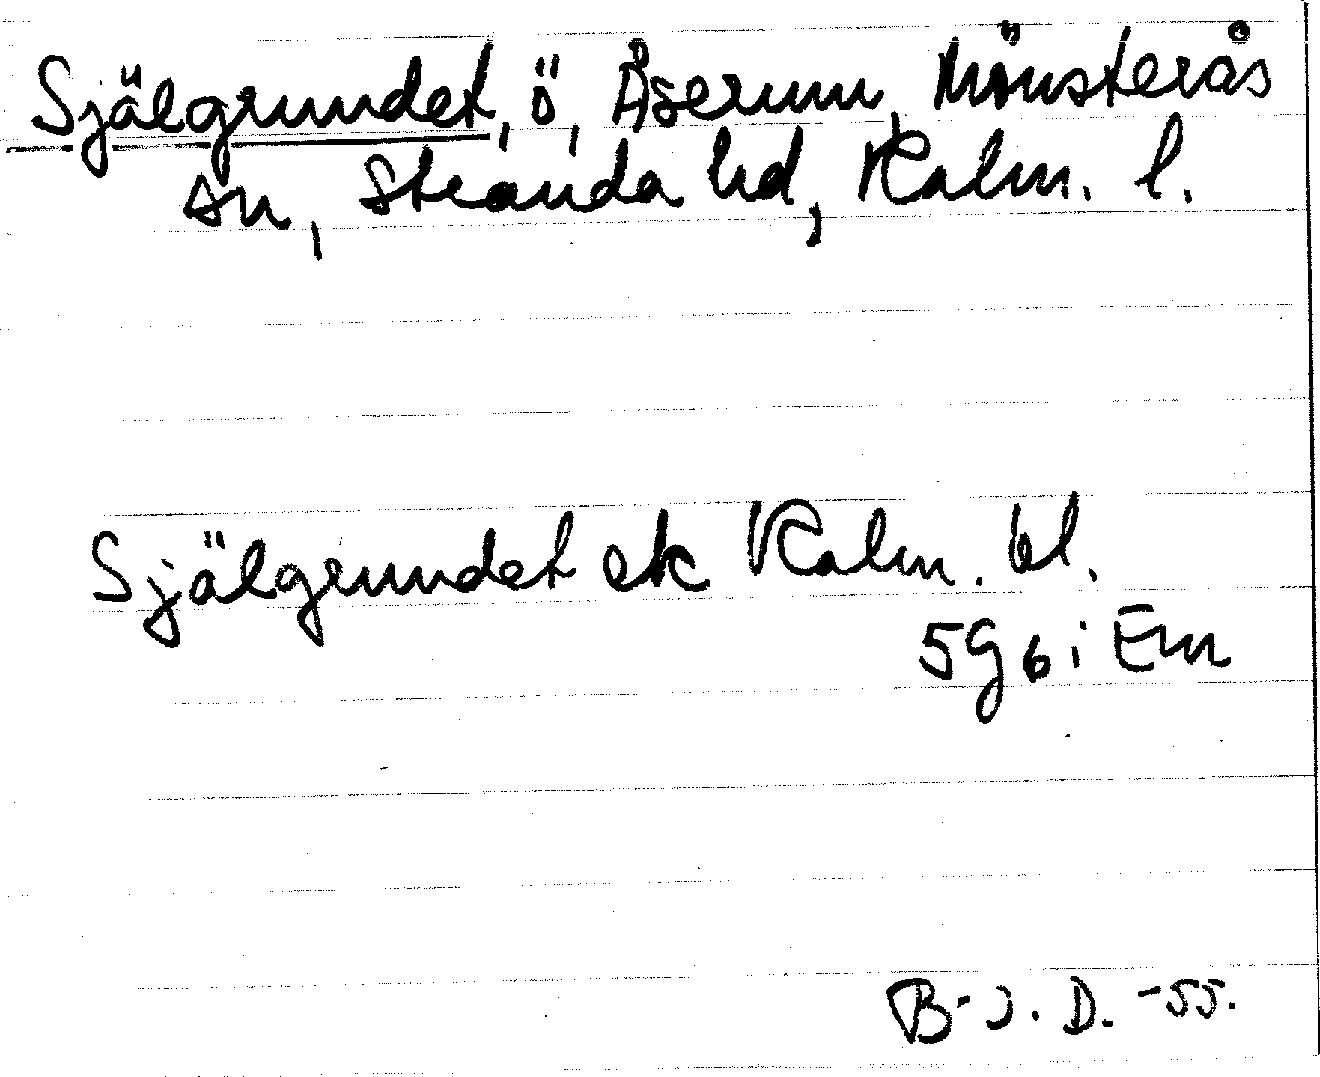 Själgrundet, ö, Åserum, Mönsterås
sn, Stranda hd, Kalm. l.
Själgrundet ek Kalm. bl.
5G6i Em
B-J. D. -55.